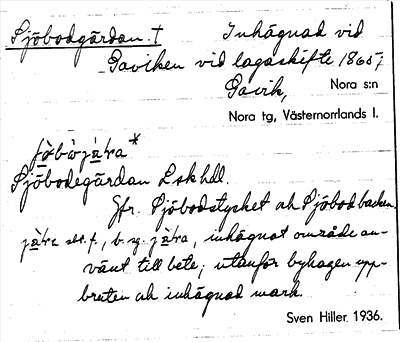 Sjöbodgärdan. † Inhägnad vid
Gaviken vid lagaskifte 1865;
Gavik, Nora s:n
Nora tg, Västernorrlands l.
Sjöbodegärdan Lskhdl.
Jfr. Sjöbodstycket och Sjöbodbacken.
str. f., b. sg. inhägnat område an-
vänt till bete; utanför byhagen upp-
bruten och inhägnad mark.
Sven Hiller 1936.